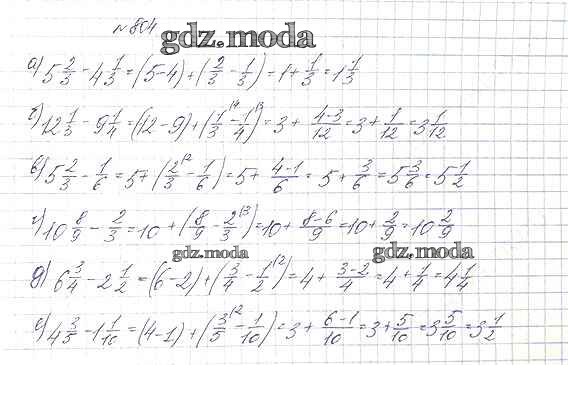 № 804
gdz.moda
а) 5 2/3 - 4 1/3 = (5-4) + (2/3 - 1/3) = 1 + 1/3 = 1 1/3
б) 12 1/3 - 9 1/4 = (12-9) + (1/3 \4 - 1/4 \3) = 3 + (4-3)/12 = 3 + 1/12 = 3 1/12
в) 5 2/3 - 1/6 = 5 + (2/3 \2 - 1/6) = 5 + (4-1)/6 = 5 + 3/6 = 5 3/6 = 5 1/2
г) 10 8/9 - 2/3 = 10 + (8/9 - 2/3 \3) = 10 + (8-6)/9 = 10 + 2/9 = 10 2/9
gdz.moda gdz.moda
д) 6 3/4 - 2 1/2 = (6-2) + (3/4 - 1/2 \2) = 4 + (3-2)/4 = 4 + 1/4 = 4 1/4
е) 4 3/5 - 1 1/10 = (4-1) + (3/5 \2 - 1/10) = 3 + (6-1)/10 = 3 + 5/10 = 3 5/10 = 3 1/2